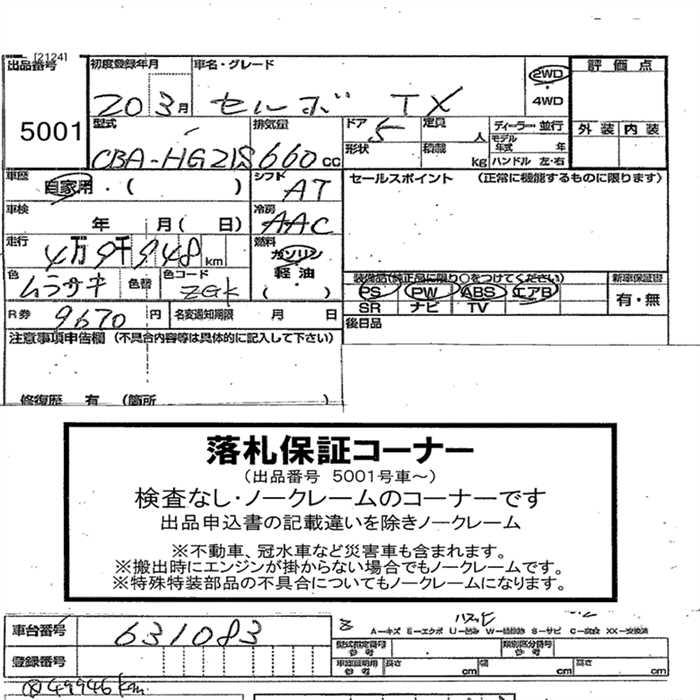 [2124]
出品番号 初度登録年月 車名・グレード 2WD 評価点
20 3月 セルボ TX 4WD
5001 型式 排気量 ドア 定員 ディーラー・並行 外装 内装
CBA-HG21S 660 cc 5 人 モデル年式 年
形状 積載 kg ハンドル 左・右
車歴 自家用・( ) シフト AT セールスポイント (正常に機能するものに限ります)
車検 年 月( 日) 冷房 AAC
走行 4万9千948km 燃料 ガソリン・軽油・( )
色 ムラサキ 色替 色コード ZGK
装備品(純正品に限り○をつけてください) 新車保証書
PS PW ABS エアB 有・無
SR ナビ TV
R券 9670円 名変通知期限 月 日 後日品
注意事項申告欄 (不具合内容等は具体的に記入して下さい)
修復歴 有 (箇所 )
落札保証コーナー
(出品番号 5001号車~)
検査なし・ノークレームのコーナーです
出品申込書の記載違いを除きノークレーム
※不動車、冠水車など災害車も含まれます。
※搬出時にエンジンが掛からない場合でもノークレームです。
※特殊特装部品の不具合についてもノークレームになります。
車台番号 631083
A-キズ E-エクボ U-凹み S-サビ C-腐食 XX-交換済
登録番号 型式指定番号 参考 類別区分番号 参考
車証証明用 参考 長さ cm 幅 cm 高さ cm
49946km